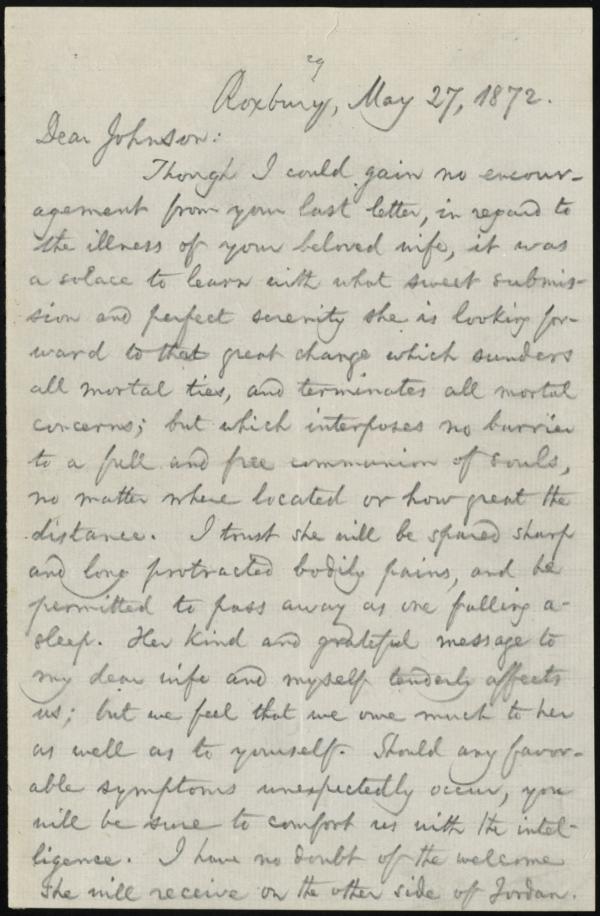 29
Roxbury, May 27, 1872.
Dear Johnson:
Though I could gain no encour-
agement from your last letter, in regard to
the illness of your beloved wife, it was
a solace to learn with what sweet submis-
sion and perfect serenity she is looking for-
ward to that great change which sunders
all mortal ties, and terminates all mortal
concerns; but which interposes no barrier
to a full and free communion of souls,
no matter where located or how great the
distance. I trust she will be spared sharp
and long protracted bodily pains, and be
permitted to pass away as one falling a-
sleep. Her kind and grateful message to
my dear wife and myself tenderly affects
us; but we feel that we owe much to her
as well as to yourself. Should any favor-
able symptoms unexpectedly occur, you
will be sure to comfort us with the intel-
ligence. I have no doubt of the welcome
she will receive on the other side of Jordan.